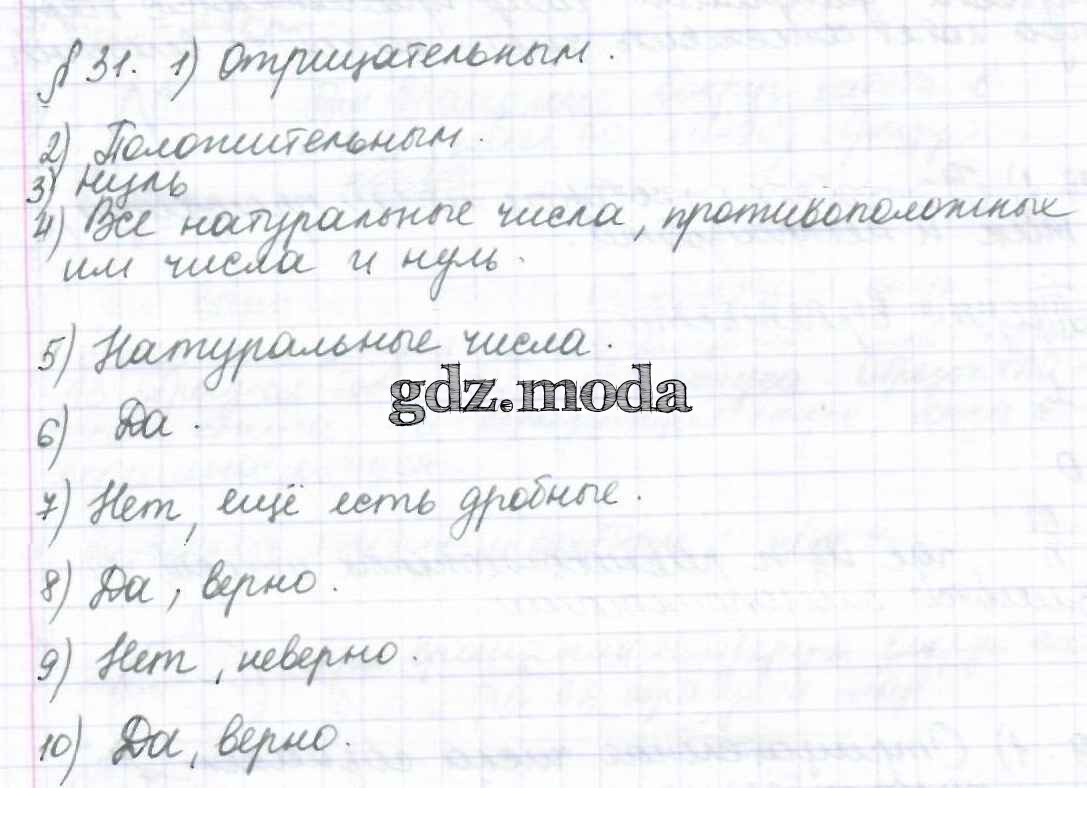 § 31. 1) Отрицательным.
2) Положительным.
3) Нуль
4) Все натуральные числа, противоположных
им числа и нуль.
5) Натуральные числа.
gdz.moda
6) Да.
7) Нет, ещё есть дробные.
8) Да, верно.
9) Нет, неверно.
10) Да, верно.